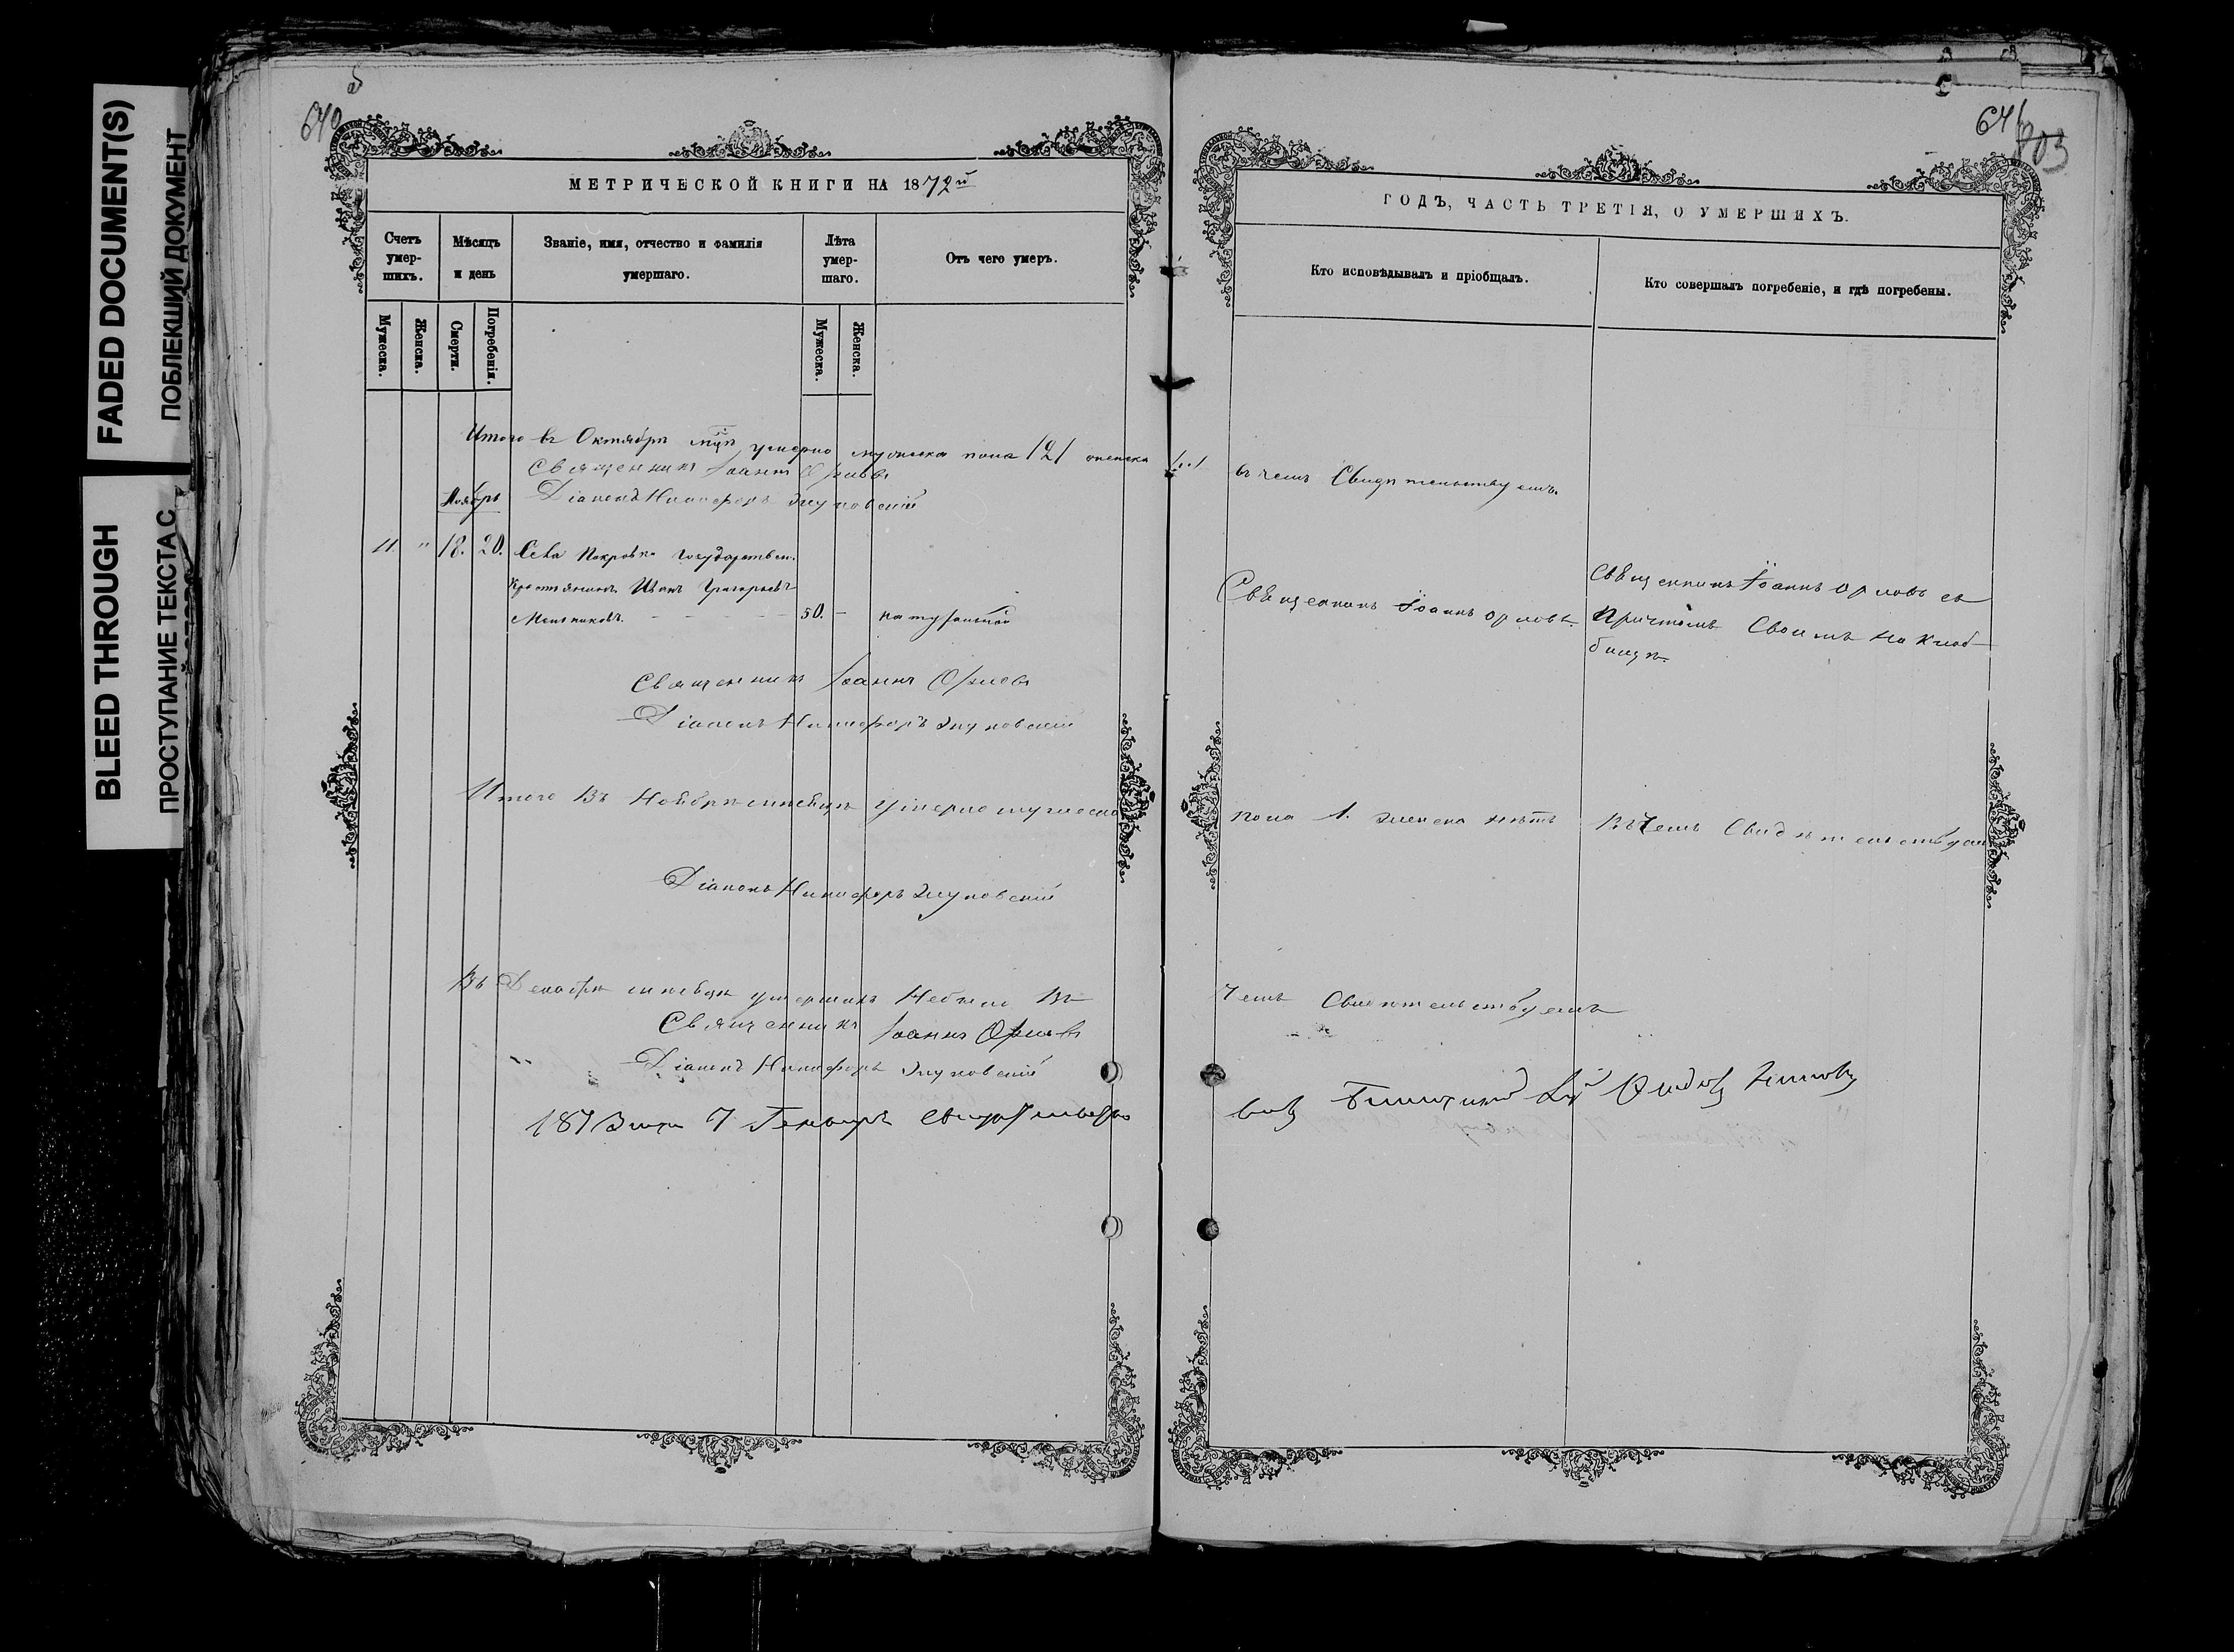 FADED DOCUMENT(S)
ПОБЛЕКШИЙ ДОКУМЕНТ
BLEED THROUGH
ПРОСТУПАНИЕ ТЕКСТА С
640
641
803
МЕТРИЧЕСКОЙ КНИГИ НА 1872й
ГОДЪ, ЧАСТЬ ТРЕТІЯ, О УМЕРШИХЪ.
Счетъ умер-
шихъ.
Мѣсяцъ
и день
Званіе, имя, отчество и фамилія
умершаго.
Лѣта
умер-
шаго.
Отъ чего умеръ.
Кто исповѣдывалъ и пріобщалъ.
Кто совершалъ погребеніе, и гдѣ погребены.
Мужеска.
Женска.
Смерти.
Погребенія.
Мужеска.
Женска.
Итого въ Октябрѣ мцѣ умерло мужеска пола /2/ женска /1/ въ чемъ Свидѣтельствуемъ.
Священникъ Іоаннъ Орловъ
Ноябрь
Діаконъ Никифоръ
11. " 18. 20. Села Покровки Государствен.
Крестьянинъ Иванъ Григорьевъ
Мельниковъ. 50. - натуральной
Священникъ Іоаннъ Орловъ.
Священникъ Іоаннъ Орловъ съ
Причтомъ Своимъ на клад-
бищѣ.
Священникъ Іоаннъ Орловъ
Діаконъ Никифоръ
Итого Въ Ноябрѣ мѣсяцѣ умерло мужеска пола 1. женска нѣтъ Въ Чемъ Свидѣтельствуемъ
Діаконъ Никифоръ
Въ Декабрѣ мѣсяцѣ умершихъ Небыло Въ Чемъ Свидѣтельствуемъ
Священникъ Іоаннъ Орловъ
Діаконъ Никифоръ
1873 года 7 Генваря